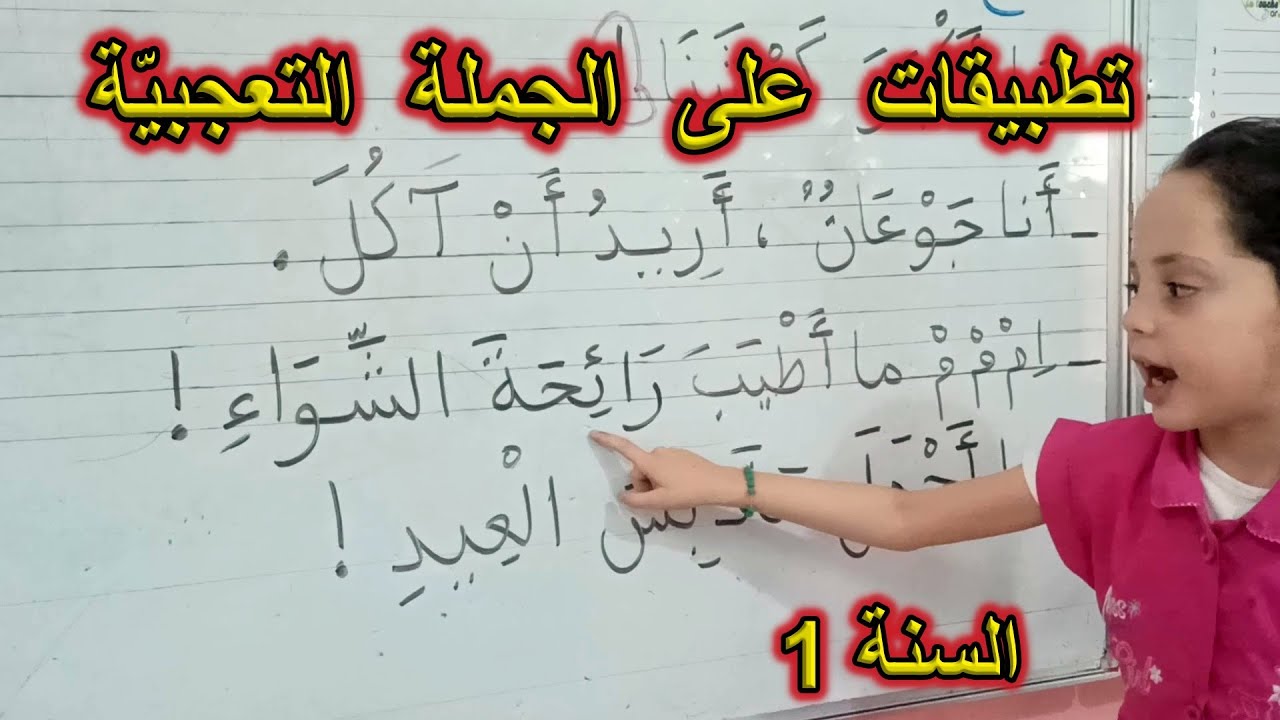 تطبيقات على الجملة التعجبيّة
- أَنا جَوْعَانٌ ، أَرِيدُ أَنْ آكُلَ .
- اِمْ مْ مْ ما أَطْيَبَ رَائِحَةَ الشِّوَاءِ !
الْعِيدِ !
السنة 1